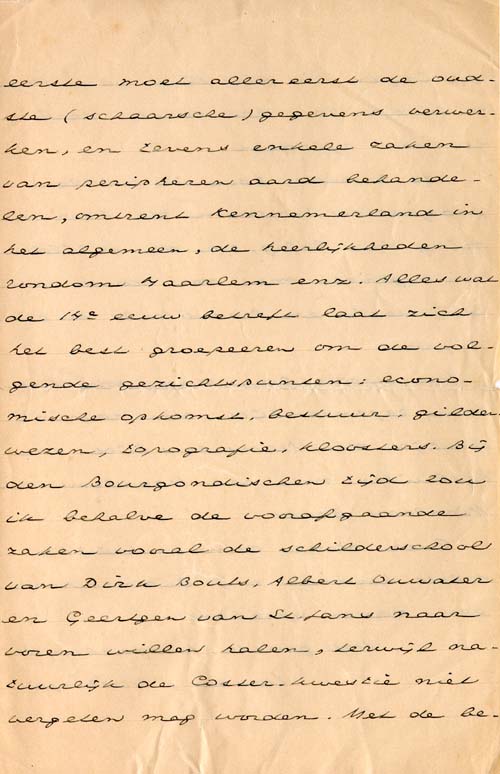 eerste moet allereerst de oud-
ste (schaarsche) gegevens verwer-
ken, en tevens enkele zaken
van peripheren aard behande-
len, omtrent Kennemerland in
het algemeen, de heerlijkheden
rondom Haarlem enz. Alles wat
de 14e eeuw betreft laat zich
het best groepeeren om de vol-
gende gezichtspunten: econo-
mische opkomst, bestuur, gilde-
wezen, topografie, kloosters. Bij
den Bourgondischen tijd zou
ik behalve de voorafgaande
zaken vooral de schilderschool
van Dirk Bouts, Albert Ouwater
en Geertgen van St Jans naar
voren willen halen, terwijl na-
tuurlijk de Coster-kwestie niet
vergeten mag worden. Met de be-